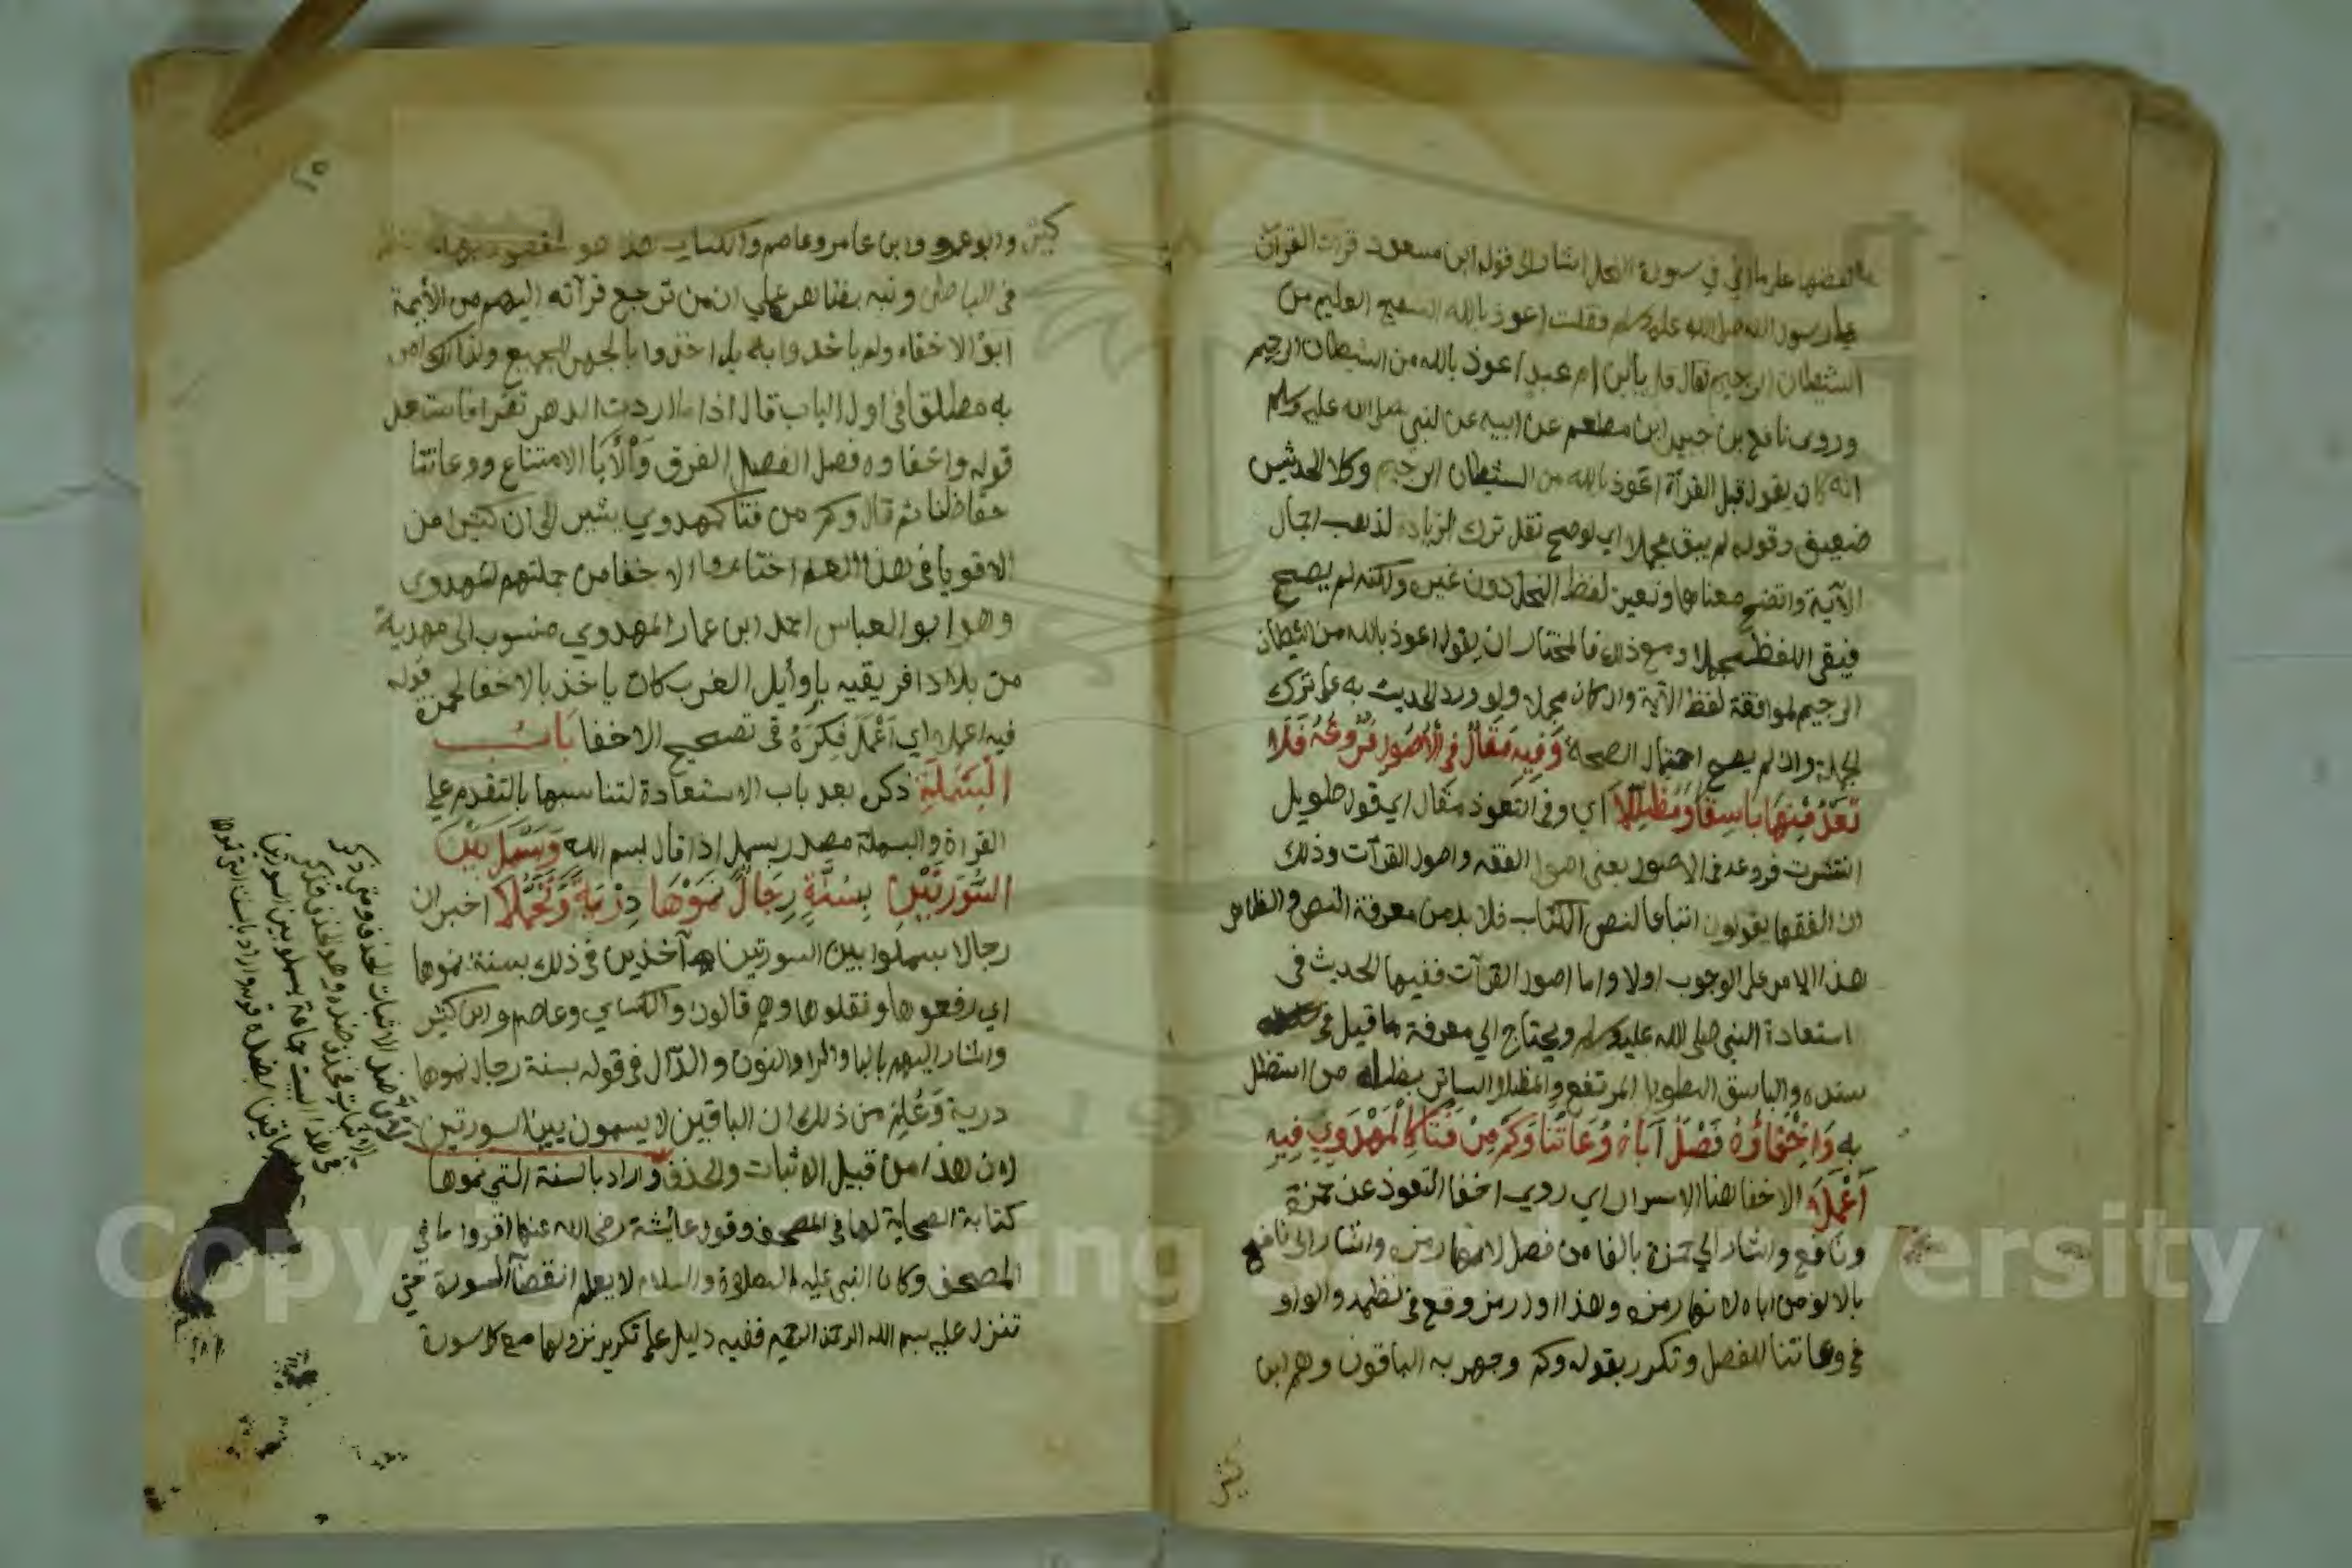 لفظها على ما اتي في سورة النحل اشار الى قول ابن مسعود قرات القرآن
على رسول الله صلى الله عليه وسلم فقلت اعوذ بالله السميع العليم من
الشيطان الرجيم فقال قل يا ابن ام عبد اعوذ بالله من الشيطان الرجيم
وروى نافع بن جبير ابن مطعم عن ابيه عن النبي صلى الله عليه وسلم
انه كان يقول قبل القرأة اعوذ بالله من الشيطان الرجيم وكلا الحديثين
ضعيف وقوله لم يبق مجملا اي لو صح نقل ترك الزيادة لذهب اجمال
الآية واتضح معناها وتعين لفظ النحل دون غيره ولكنه لم يصح
فبقى اللفظ مجملا ومع ذلك فالمختار ان يقول اعوذ بالله من الشيطان
الرجيم لموافقة لفظ الآية وان كان مجملا ولورود الحديث به على ترك
الجملة وان لم يصح احتمال الصحة وَفِيهِ مَقَالٌ فِي الْأُصُولِ فُرُوعُهُ فَلَا
تَعْدُ مِنْهَا بَاسِقًا وَمُظَلِّلَا اي وفى التعوذ مقال اي قول طويل
انتشرت فروعه فى الاصول يعنى اصول الفقه واصول القرآت وذلك
ان الفقها يقولون اتباعا لنص الكتاب فلا بد من معرفة النص والظاهر
هذا الامر على الوجوب اولا واما اصول القرآت ففيها الحديث فى
استعاذة النبي صلى الله عليه وسلم ويحتاج الي معرفة ما قيل فى
سنده والباسق الطويل المرتفع والمظلل الساتر بظله من استظل
به وَاِخْفَاؤُهُ فَصْلٌ أَبَاهُ وُعَاتُنَا وَكَمْ مِنْ فَتًا كَالْمَهْدَوِي فِيهِ
أَعْمَلَا الاخفا هنا الاسرار اي روي اخفا التعوذ عن حمزة
ونافع واشار الي حمزة بالفاء من فصل لانها رمزه واشار الى نافع
بالالف من اباه لانها رمزه وهذا اول رمز وقع فى نظمه والواو
فى وعاتنا للفصل وتكرر بقوله وكم وجهر به الباقون وهم ابن
كثير
٢٥
كثير وابو عمرو وابن عامر وعاصم والكسايي هذا هو المقصود بهذا
فى الباطن ونبه بظاهر علي ان من ترجع قرآته اليهم من الأيمة
ابوْ الاخفاء ولم ياخذوا به بل اخذوا بالجهر للجميع ولذلك امر
به مطلقا فى اول الباب قال اذا ما اردت الدهر تقرا فاستعذ
قوله واخفاوه فصل الفصل الفرق وَالْأَبَا الامتناع ووعاتنا
حفاظنا ثم قال وكم من فتا كمهدوي يشير الى ان كثيرا من
الاقويا فى هذا العلم اختاروا الاخفا من جملتهم المهدوي
وهو ابو العباس احمد ابن عمار المهدوي منسوب الى مهدية
من بلاد افريقيه باوأيل الغرب كان ياخذ بالاخفا لحمزة قوله
فيه اعملا اي اَعْمَلَ فِكرَهُ فى تصحيح الاخفا بَابُ
الْبَسْمَلَةِ ذكره بعد باب الاستعاذة لتناسبها بالتقدم على
القراة والبسملة مصدر بسمل اذا قال بسم الله وَبَسْمَلَ بَيْنَ
السُّورَتَيْنِ بِسُنَّةٍ رِجَالٌ نَمَوْهَا دِرْيَةً وَتَحَمُّلَا اخبر ان
رجالا بسملوا بين السورتين آخذين فى ذلك بسنة نموها
اي رفعوها ونقلوها وهم قالون والكسايي وعاصم وابن كثير
واشار اليهم بالبا والرا والنون والدّال فى قوله بسنة رجال نموها
درية وَعُلِمَ من ذلك ان الباقين لا يبسملون بين السورتين
لان هذا من قبيل الاثبات والحذف واراد بالسنة التي نموها
كتابة الصحابة لها فى المصحف وقول عايشة رضى الله عنها اقروا ما في
المصحف وكان النبى عليه الصلاة والسلام لا يعلم انقضآ السورة حتي
تنزل عليه بسم الله الرحمن الرحيم ففيه دليل على تكرير نزولها مع كل سورة
ضد الاثبات الحذف ومتى ذكر
الاثبات فخذ ضده وهو الحذف فذكر
فى هذا البيت جماعة يبسملون بين السورتين